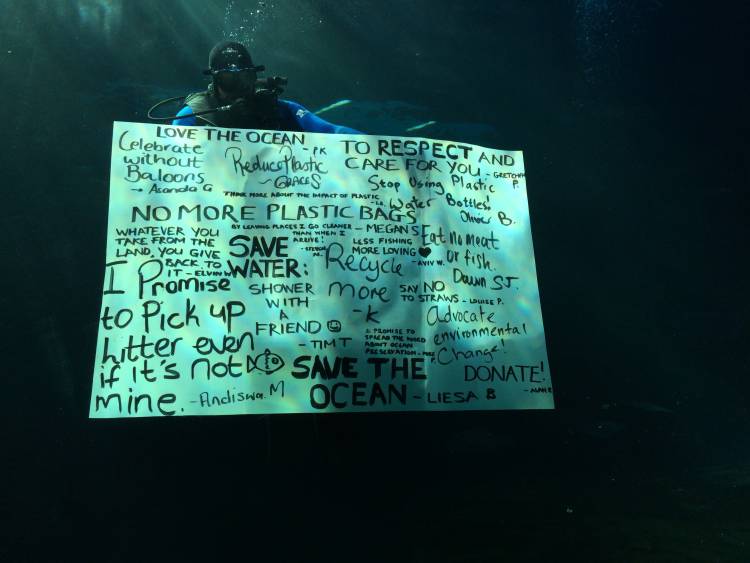 LOVE THE OCEAN
- PK
TO RESPECT AND
CARE FOR YOU - GRETCHEN
P.
Celebrate
without
Baloons
→ Asanda G
Reduce Plastic
~ GRACE S
Stop Using Plastic
Water Bottles.
Oliver B.
THINK MORE ABOUT THE IMPACT OF PLASTIC
NO MORE PLASTIC BAGS
- MEGAN S
WHATEVER YOU
TAKE FROM THE
LAND, YOU GIVE
BACK TO
IT - ELVIN W
BY LEAVING PLACES I GO CLEANER
THAN WHEN I
ARRIVE!
LESS FISHING
MORE LOVING ♥
- AVIV W.
Eat no meat
or fish.
Dawn ST.
SAVE
WATER:
SHOWER
WITH
A
FRIEND ☺
- TIM T
Recycle
more
- K
SAY NO
TO STRAWS - LOUISE P.
I Promise
to Pick up
litter even
if it's not
mine. - Andiswa. M
I PROMISE TO
SPREAD THE WORD
ABOUT OCEAN
PRESERVATION
Advocate
environmental
Change!
SAVE THE
OCEAN - LIESA B
DONATE!